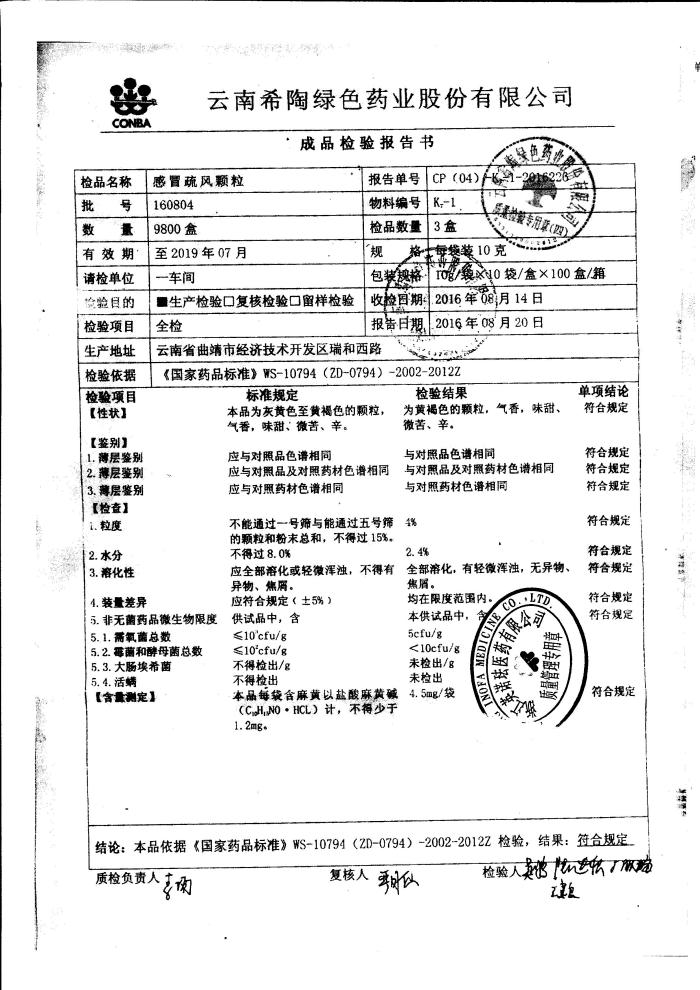 CONBA
云南希陶绿色药业股份有限公司
成品检验报告书
检品名称 感冒疏风颗粒 报告单号 CP（04）
批 号 160804 物料编号 K-1
数 量 9800 盒 检品数量 3 盒
有 效 期 至 2019 年 07 月 规 格 每袋装 10 克
请检单位 一车间 包装规格 10g/袋×10 袋/盒×100 盒/箱
检验目的 ■生产检验□复核检验□留样检验 收检日期 2016 年 08 月 14 日
检验项目 全检 报告日期 2016 年 08 月 20 日
生产地址 云南省曲靖市经济技术开发区瑞和西路
检验依据 《国家药品标准》WS-10794（ZD-0794）-2002-2012Z
检验项目 标准规定 检验结果 单项结论
【性状】 本品为灰黄色至黄褐色的颗粒， 为黄褐色的颗粒，气香，味甜、 符合规定
气香，味甜、微苦、辛。 微苦、辛。
【鉴别】
1.薄层鉴别 应与对照品色谱相同 与对照品色谱相同 符合规定
2.薄层鉴别 应与对照品及对照药材色谱相同 与对照品及对照药材色谱相同 符合规定
3.薄层鉴别 应与对照药材色谱相同 与对照药材色谱相同 符合规定
【检查】
1.粒度 不能通过一号筛与能通过五号筛 4% 符合规定
的颗粒和粉末总和，不得过 15%。
2.水分 不得过 8.0% 2.4% 符合规定
3.溶化性 应全部溶化或轻微浑浊，不得有 全部溶化，有轻微浑浊，无异物、 符合规定
异物、焦屑。 焦屑。
4.装量差异 应符合规定（±5%） 均在限度范围内。 符合规定
5.非无菌药品微生物限度 供试品中，含 本供试品中，含 符合规定
5.1.需氧菌总数 ≤10³cfu/g 5cfu/g
5.2.霉菌和酵母菌总数 ≤10²cfu/g <10cfu/g
5.3.大肠埃希菌 不得检出/g 未检出/g
5.4.活螨 不得检出 未检出
【含量测定】 本品每袋含麻黄以盐酸麻黄碱 4.5mg/袋 符合规定
（C₁₀H₁₅NO·HCL）计，不得少于
1.2mg。
INOFA MEDICINE CO.,LTD.
质量管理专用章
结论：本品依据《国家药品标准》WS-10794（ZD-0794）-2002-2012Z 检验，结果：符合规定
质检负责人 复核人 检验人